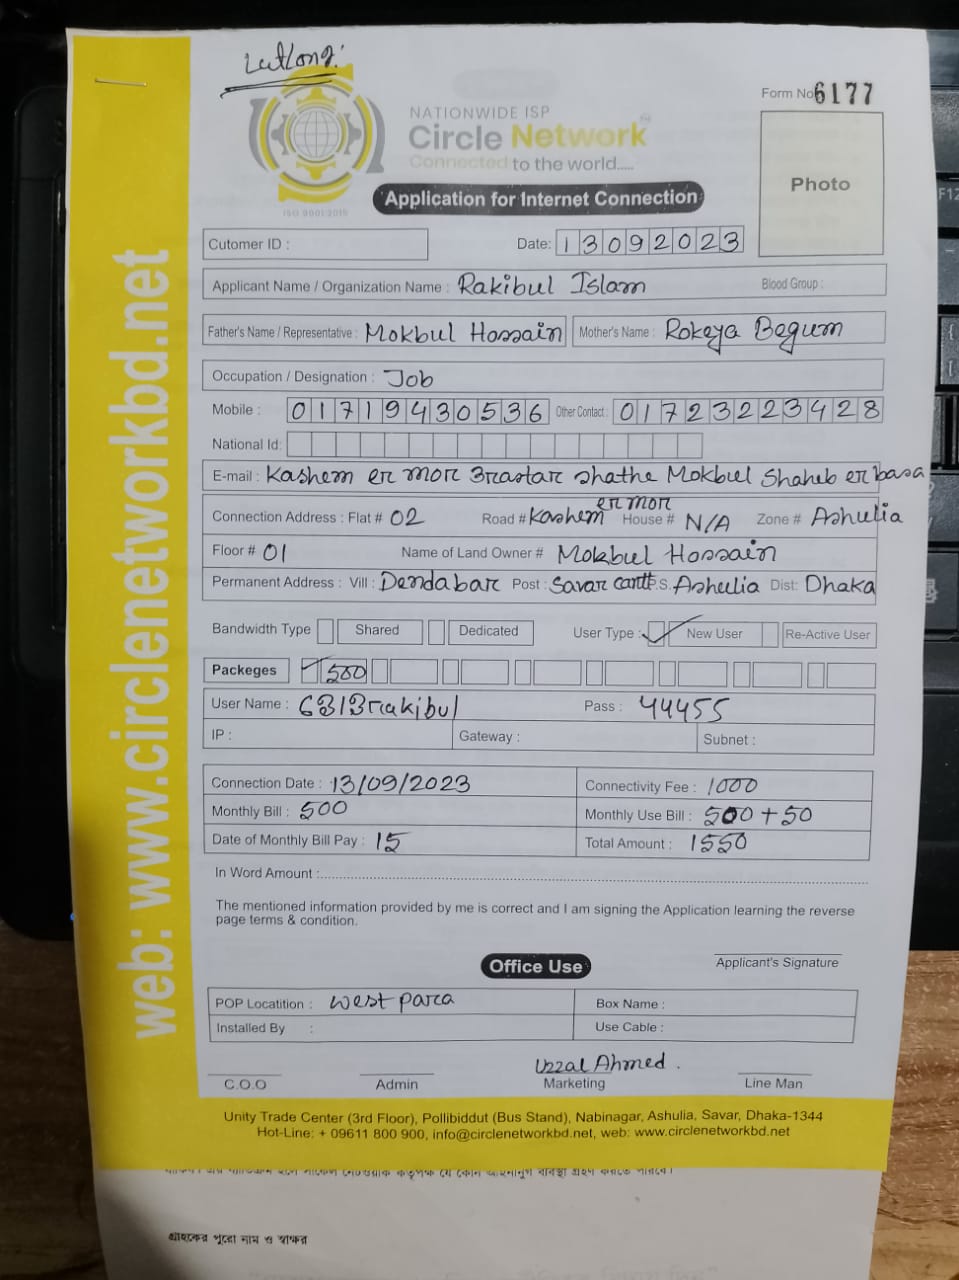 Form No 6177
NATIONWIDE ISP
Circle Network
Connected to the world.....
ISO 9001:2015
Application for Internet Connection
Photo
Cutomer ID :
Date: 13092023
Applicant Name / Organization Name : Rakibul Islam Blood Group :
Father's Name / Representative : Mokbul Hossain Mother's Name : Rokeya Begum
Occupation / Designation : Job
Mobile : 01719430536 Other Contact : 01723223428
National Id:
E-mail : Kashem er mor 3rastar shathe Mokbul Shaheb er basa
Connection Address : Flat # 02 Road # Kashem er mor House # N/A Zone # Ashulia
Floor # 01 Name of Land Owner # Mokbul Hossain
Permanent Address : Vill : Dendabar Post : Savar cantt P.S. Ashulia Dist: Dhaka
Bandwidth Type Shared Dedicated User Type : New User Re-Active User
Packeges 500
User Name : Pass : 44455
IP : Gateway : Subnet :
Connection Date : 13/09/2023 Connectivity Fee : 1000
Monthly Bill : 500 Monthly Use Bill : 500 + 50
Date of Monthly Bill Pay : 15 Total Amount : 1550
In Word Amount :
The mentioned information provided by me is correct and I am signing the Application learning the reverse
page terms & condition.
Applicant's Signature
Office Use
POP Locatition : West para Box Name :
Installed By : Use Cable :
Uzzal Ahmed.
C.O.O Admin Marketing Line Man
Unity Trade Center (3rd Floor), Pollibiddut (Bus Stand), Nabinagar, Ashulia, Savar, Dhaka-1344
Hot-Line: + 09611 800 900, info@circlenetworkbd.net, web: www.circlenetworkbd.net
web: www.circlenetworkbd.net
গ্রাহকের পুরো নাম ও স্বাক্ষর